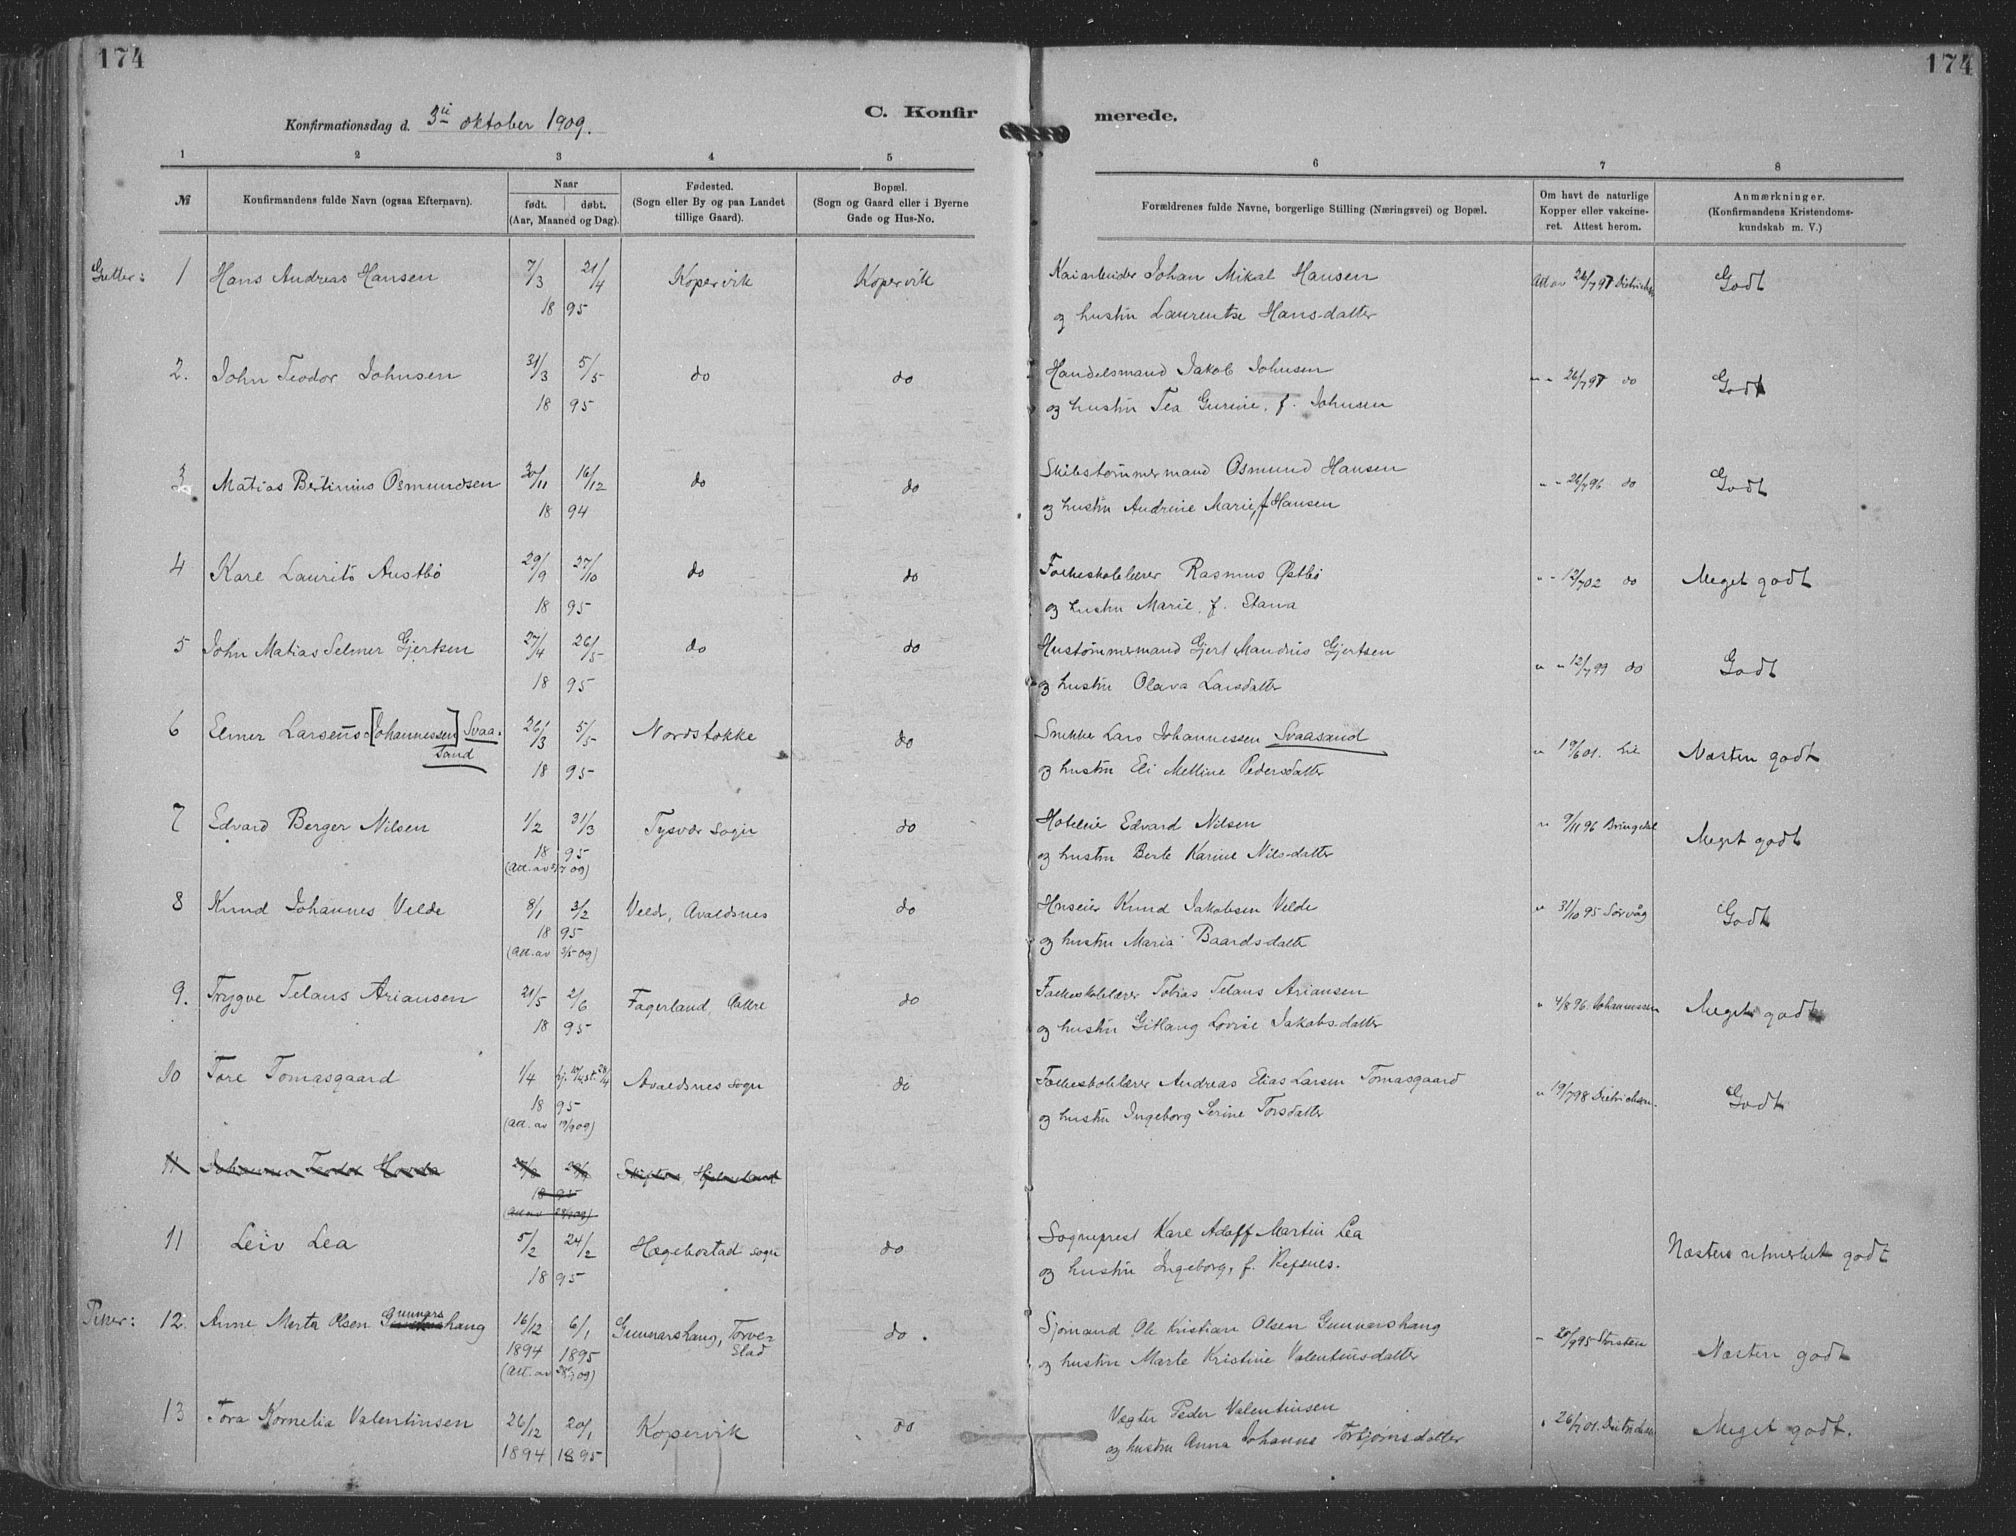 174
174
C. Konfir
merede.
Konfirmationsdag d. 3ii oktober 1909.
1 2 3 4 5 6 7 8
№
Konfirmandens fulde Navn (ogsaa Efternavn).
Naar
født. døbt.
(Aar, Maaned og Dag).
Fødested.
(Sogn eller By og paa Landet
tillige Gaard).
Bopæl.
(Sogn og Gaard eller i Byerne
Gade og Hus-No.
Forældrenes fulde Navne, borgerlige Stilling (Næringsvei) og Bopæl.
Om havt de naturlige
Kopper eller vakcine-
ret. Attest herom.
Anmærkninger.
(Konfirmandens Kristendoms-
kundskab m. V.)
Gutter: 1 Hans Andreas Hansen 7/3 21/4 Kopervik Kopervik Kaiarbeider Johan Mikal Hansen Att av 26/7 97 Godt
18 95 og hustru Laurentse Hansdatter
2. John Teodor Johnsen 31/3 5/5 do do Handelsmand Jakob Johnsen " " 26/7 97 do Godt
18 95 og hustru Tea Gurine, f. Johnsen
3 Matias Bertinius Osmundsen 30/11 16/12 do do Skibstømmermand Osmund Hansen " " 26/7 96 do Godt
18 94 og hustru Andrine Marie, f Hansen
4 Kare Laurits Austbö 29/9 27/10 do do Folkeskolelærer Rasmus Østbö " " 12/7 02 do Meget godt
18 95 og hustru Marie, f. Stava
5 John Matias Selmer Gjertsen 27/4 26/5 do do Hustømmermand Gjert Mandius Gjertsen " " 12/7 99 do Godt
18 95 og hustru Olava Larsdatter
6 Elmer Larsenius [Johannessen] Svaa-
sand 26/3 5/5 Nordstokke do Snekker Lars Johannessen Svaasand " 19/6 01. Lie Næsten godt
18 95 og hustru Eli Melline Pedersdatter
7 Edvard Berger Nilsen 1/2 31/3 Tysvær sogn do Hoteleier Edvard Nilsen " 9/11 96 Bringedal Meget godt
18 95 og hustru Berte Karine Nilsdatter
8 Knud Johannes Velde 8/1 3/2 Velde, Avaldsnes do Huseier Knud Jakobsen Velde " 31/10 95 Sørvåg Godt
18 95 og hustru Maria Baardsdatter
(Att. av 3/5 09)
9. Trygve Telaus Ariansen 21/5 2/6 Fagerland, Aakre do Folkeskolelærer Tobias Telaus Ariansen " 4/8 96. Johannessen Meget godt
18 95 og hustru Gitlaug Lovise Jakobsdatter
10 Tore Tomasgaard 1/4 Avaldsnes sogn do Folkeskolelærer Andreas Elias Larsen Tomasgaard " 19/7 98 Dietrichsen. Godt
18 95 og hustru Ingeborg Serine Torsdatter
11 Leiv Lea 5/2 24/2 Hægebostad sogn do Sogneprest Karl Adolf Martin Lea Næsten utmerket godt
18 95 og hustru Ingeborg, f. Refsnes.
Piker: 12. Anne Merta Olsen Gunnarshaug 16/12 6/1 Gunnarshaug, Torve-
stad do. Sjømand Ole Kristian Olsen Gunnarshaug " 20/9 95 Torsten Næsten godt
1894 1895 og hustru Marte Kristine Valentinsdatter
13 Tora Kornelia Valentinsen 26/12 20/1 Kopervik do Vægter Peder Valentinsen " 26/7 01. Meget godt.
1894 1895 og hustru Anna Johanna Torbjørnsdatter